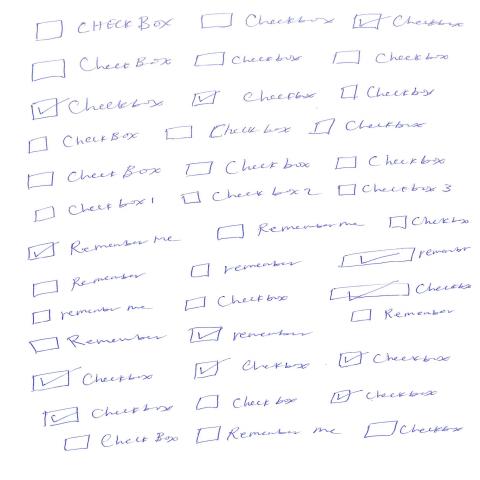 ☐ CHECK BOX ☐ Checkbox ☑ Checkbox
☐ Check Box ☐ Checkbox ☐ Checkbox
☑ Checkbox ☑ Checkbox ☐ Checkbox
☐ Check Box ☐ Check box ☐ Checkbox
☐ Check Box ☐ Check box ☐ Checkbox
☐ Check box 1 ☐ Check box 2 ☐ Checkbox 3
☑ Remember Me ☐ Remember me ☐ Checkbox
☐ Remember ☐ remember ☑ remembr
☐ remember me ☐ Checkbox ☑ Checkbo
☐ Remember ☑ remember ☐ Remember
☑ Checkbox ☑ Checkbox ☑ Checkbox
☑ Checkbox ☐ Check box ☑ Checkbox
☐ Check Box ☐ Remember me ☐ Checkbox